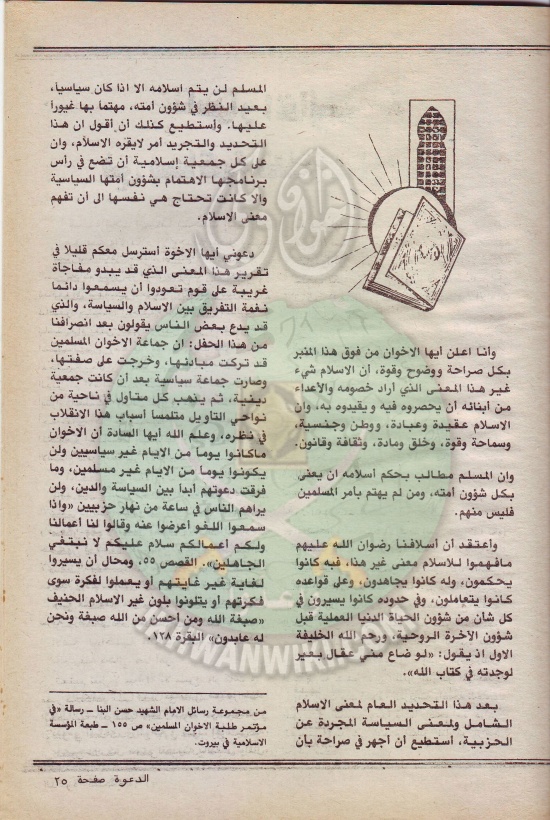 وأنا اعلن أيها الاخوان من فوق هذا المنبر
بكل صراحة ووضوح وقوة، أن الاسلام شيء
غير هذا المعنى الذي أراد خصومه والأعداء
من أبنائه أن يحصروه فيه ويقيدوه به، وأن
الاسلام عقيدة وعبادة، ووطن وجنسية،
وسماحة وقوة، وخلق ومادة، وثقافة وقانون.
وان المسلم مطالب بحكم أسلامه ان يعنى
بكل شؤون أمته، ومن لم يهتم بأمر المسلمين
فليس منهم.
وأعتقد أن أسلافنا رضوان الله عليهم
مافهموا للاسلام معنى غير هذا، فبه كانوا
يحكمون، وله كانوا يجاهدون، وعلى قواعده
كانوا يتعاملون، وفي حدوده كانوا يسيرون في
كل شأن من شؤون الحياة الدنيا العملية قبل
شؤون الآخرة الروحية، ورحم الله الخليفة
الاول اذ يقول: «لو ضاع مني عقال بعير
لوجدته في كتاب الله».
بعد هذا التحديد العام لمعنى الاسلام
الشامل ولمعنى السياسة المجردة عن
الحزبية، أستطيع أن أجهر في صراحة بأن
المسلم لن يتم اسلامه الا اذا كان سياسيا،
بعيد النظر في شؤون أمته، مهتما بها غيورا
عليها. وأستطيع كذلك أن أقول ان هذا
التحديد والتجريد أمر لايقره الاسلام، وان
على كل جمعية إسلامية أن تضع في رأس
برنامجها الاهتمام بشؤون أمتها السياسية
والا كانت تحتاج هي نفسها الى أن تفهم
معنى الاسلام.
دعوني أيها الاخوة أسترسل معكم قليلا في
تقرير هذا المعنى الذي قد يبدو مفاجأة
غريبة على قوم تعودوا أن يسمعوا دائما
نغمة التفريق بين الاسلام والسياسة، والذي
قد يدع بعض الناس يقولون بعد انصرافنا
من هذا الحفل: ان جماعة الاخوان المسلمين
قد تركت مبادئها، وخرجت على صفتها،
وصارت جماعة سياسية بعد أن كانت جمعية
دينية، ثم يذهب كل متاول في ناحية من
نواحي التأويل متلمسا أسباب هذا الانقلاب
في نظره، وعلم الله ايها السادة أن الاخوان
ماكانوا يوما من الايام غير سياسيين ولن
يكونوا يوما من الايام غير مسلمين، وما
فرقت دعوتهم أبدا بين السياسة والدين، ولن
يراهم الناس في ساعة من نهار حزبيين «واذا
سمعوا اللغو أعرضوا عنه وقالوا لنا أعمالنا
ولكم أعمالكم سلام عليكم لا نبتغي
الجاهلين». القصص ٥٥، ومحال أن يسيروا
لغاية غير غايتهم أو يعملوا لفكرة سوى
فكرتهم أو يتلونوا بلون غير الاسلام الحنيف
«صبغة الله ومن أحسن من الله صبغة ونحن
له عابدون» البقرة ١٢٨.
من مجموعة رسائل الامام الشهيد حسن البنا ــ رسالة «في
مؤتمر طلبة الاخوان المسلمين» ص ١٥٥ ــ طبعة المؤسسة
الاسلامية في بيروت.
الدعوة صفحة ٢٥